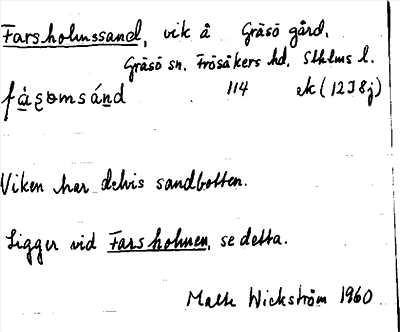 Farsholmssand, vik å Gräsö gård,
Gräsö sn. Frösåkers hd. Sthlms l.
114 ek (12I8j)
Viken har delvis sandbotten.
Ligger vid Farsholmen, se detta.
Malte Wickström 1960